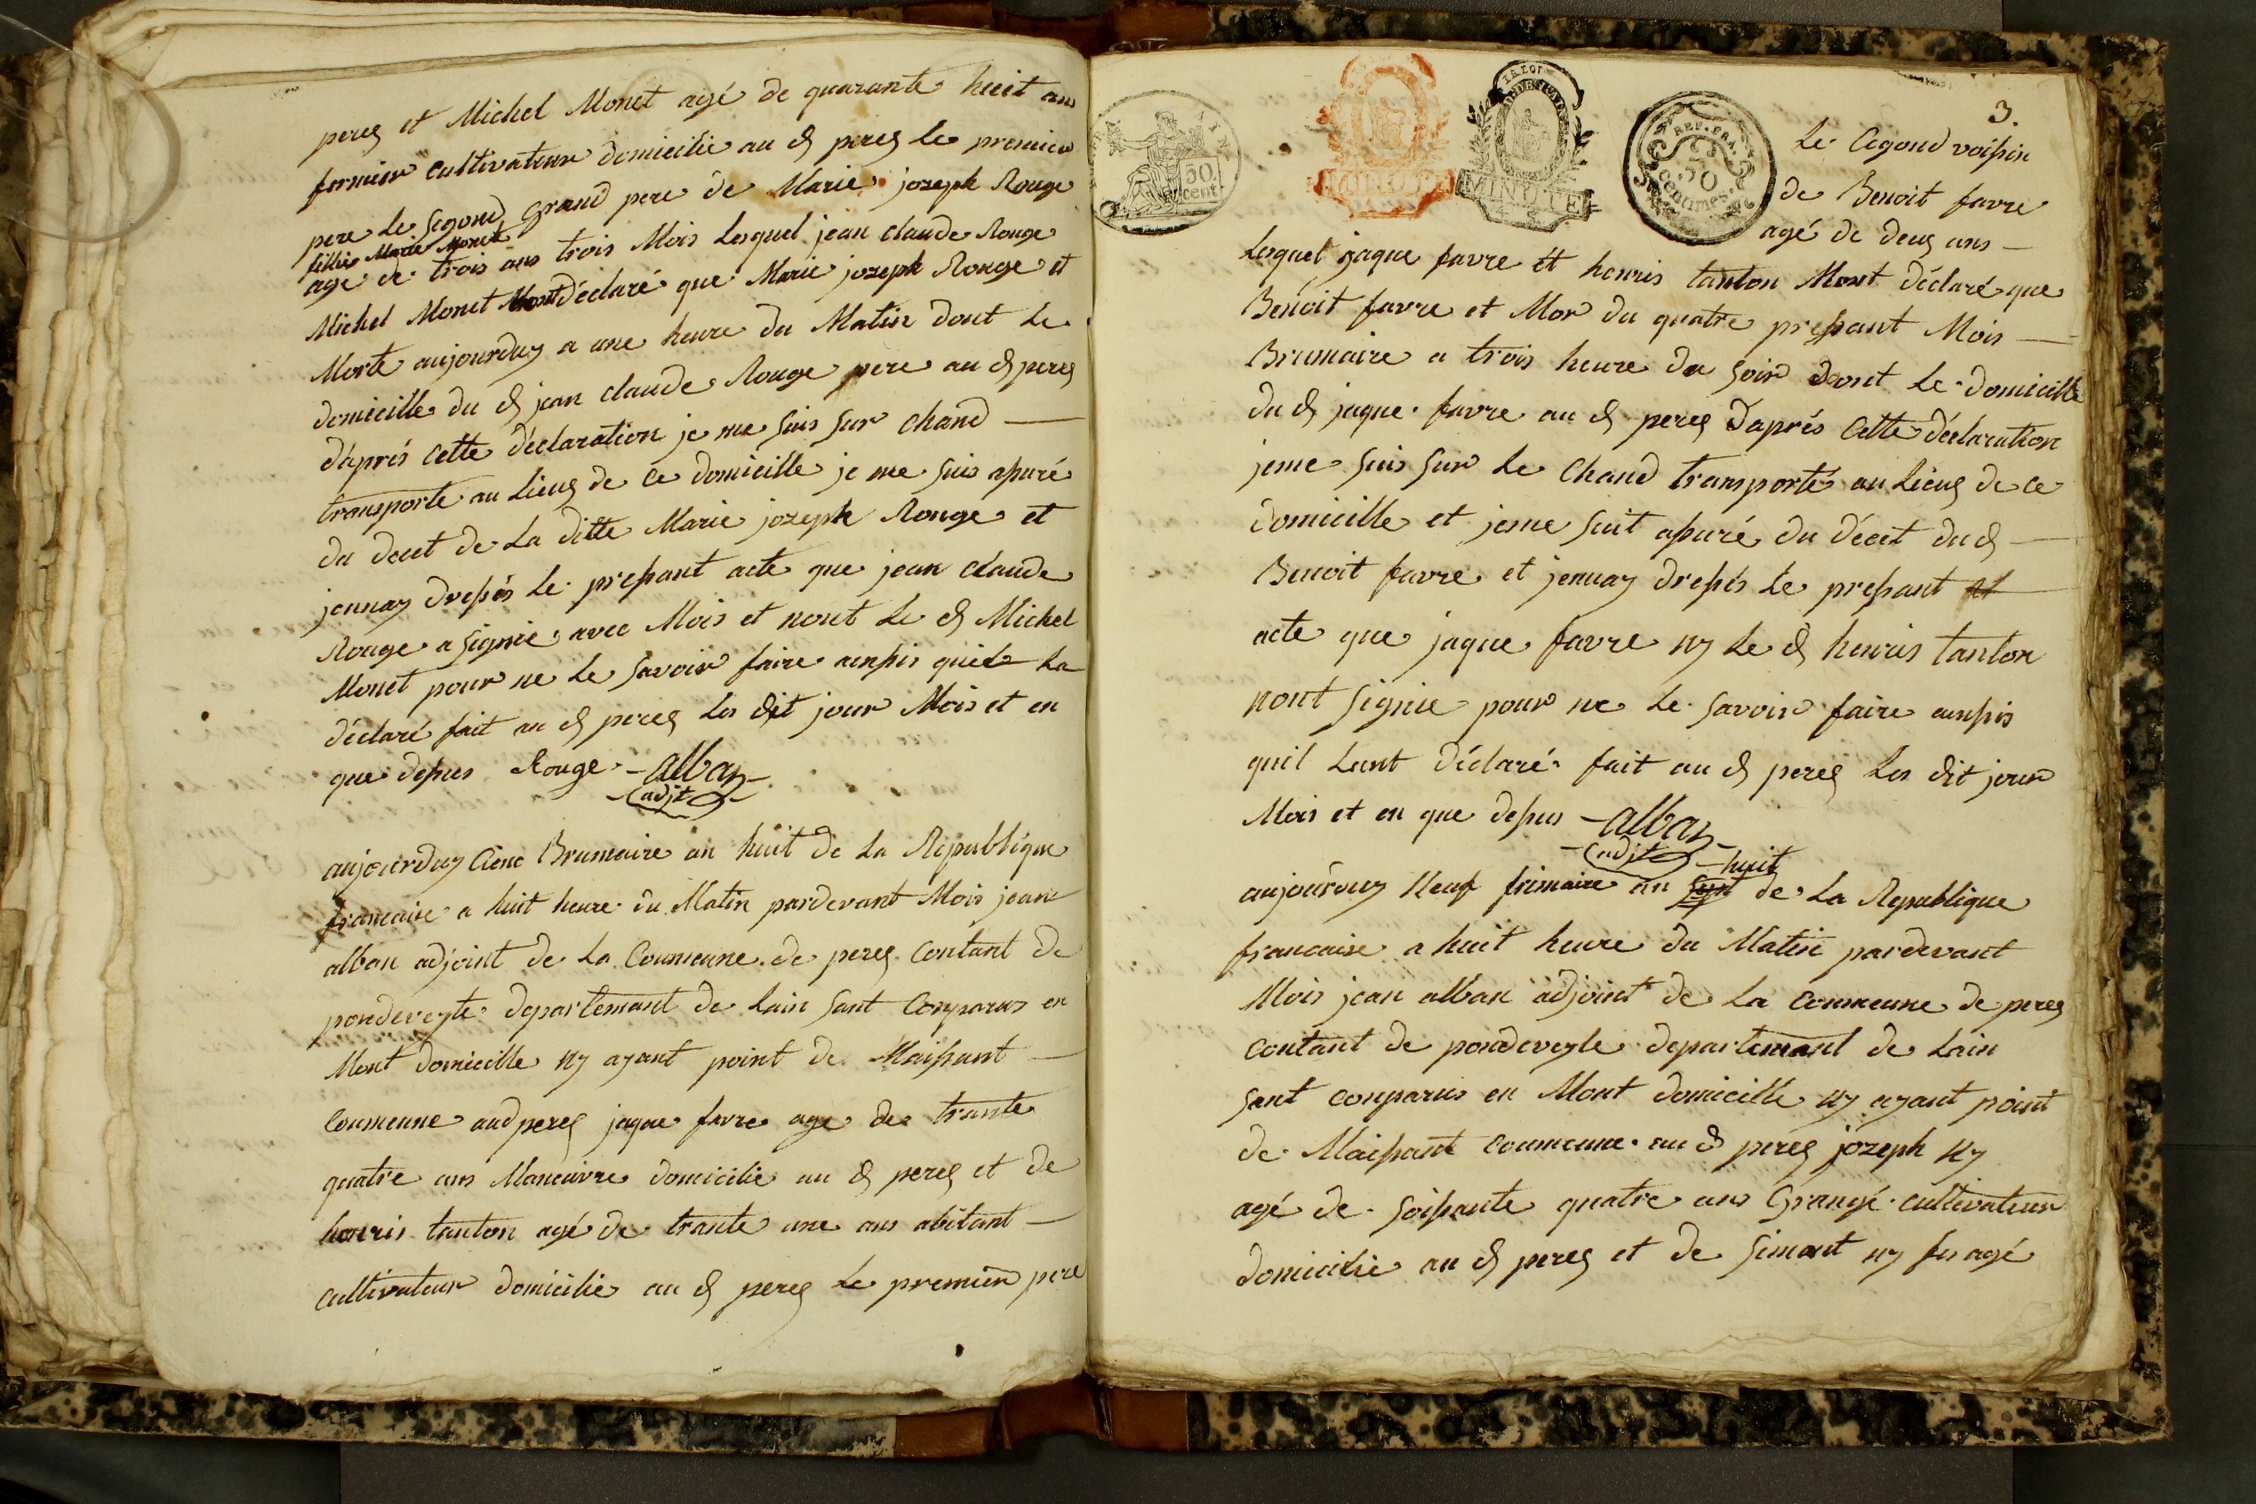 perex et Michel Monet agé de quarante huit ans
fermier cultivateur domicilié au d perex le premier
pere le segond grand pere de Marie jozeph Rouge
fillie Marie Monet
agé de trois ans trois Mois Lesquel jean claude Rouge
Michel Monet Mont déclaré que Marie jozeph Rouge et
Morte aujourduy a une heure du Matin dont le
domicille du d jean claude Rouge pere au d perex
d'aprés cette déclaration je me suis sur chand
transporté au lieux de ce domicille je me suis assuré
du decet de La ditte Marie jozeph Rouge et
jennay dressés le pressant acte que jean claude
Rouge a signié avec Mois et nont le d Michel
Monet pour ne le savoir faire ainssis quil La
déclaré fait au d perex les dit jour Mois et en
que dessus Rouge - alban -
- adjt -
aujourduy Cienc Brumaire an huit de La République
francaise a huit heure du Matin pardevant Mois jean
alban adjoint de La Coumeune de perex Contant de
pondeveyle departemant de Lain sant Comparus en
Mont domicille ny ayant point de Maissant
Coumeune aud perex jaque favre age de trante
quatre ans Maneuvre domicilié au d perex et de
henris tanton agé de trante une ans abitant
cultivateur domicilié au d perex le premier pere
3.
REP. FRA.
50
centimes
50
cent.
MINUTE
MINUTE
Le Cegond voissin
de Benoit favre
agé de deux ans
Lesquel jaque favre et henris tanton Mont déclaré que
Benoit favre et Mor du quatre pressant Mois
Brumaire a trois heure du soir dont le domicille
du d jaque favre au d perex d'aprés cette déclaration
jeme suis sur le chand transporté au lieux de ce
domicille et jeme suit assuré du décet dud
Benoit favre et jennay dressés le pressant
acte que jaque favre ny le d henris tanton
nont signié pour ne le savoir faire ainssis
quil Lant déclaré fait au d perex les dit jour
Mois et en que dessus - alban -
- adjt -
- huit
aujourduy Neuf frimaire an sept de La Republique
francaise a huit heure du Matin pardevant
Mois jean alban adjoint de La coumeune de perex
contant de pondeveyle departemant de Lain
sant comparus en Mont domicille ny ayant point
de Maissant coumeune au d perex jozeph Ny
agé de soissante quatre ans Grangé cultivateur
domicilié au d perex et de simont ny fis agé